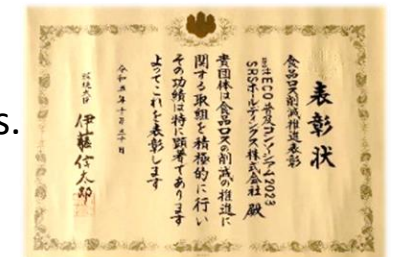 s.
表彰状
食品ロス削減推進表彰
mottECO普及コンソーシアム2023
SRSホールディングス株式会社 殿
貴団体は食品ロスの削減の推進に
関する取組を積極的に行い
その功績は特に顕著であります
よってこれを表彰します
令和五年十月三十日
環境大臣 伊藤信太郎